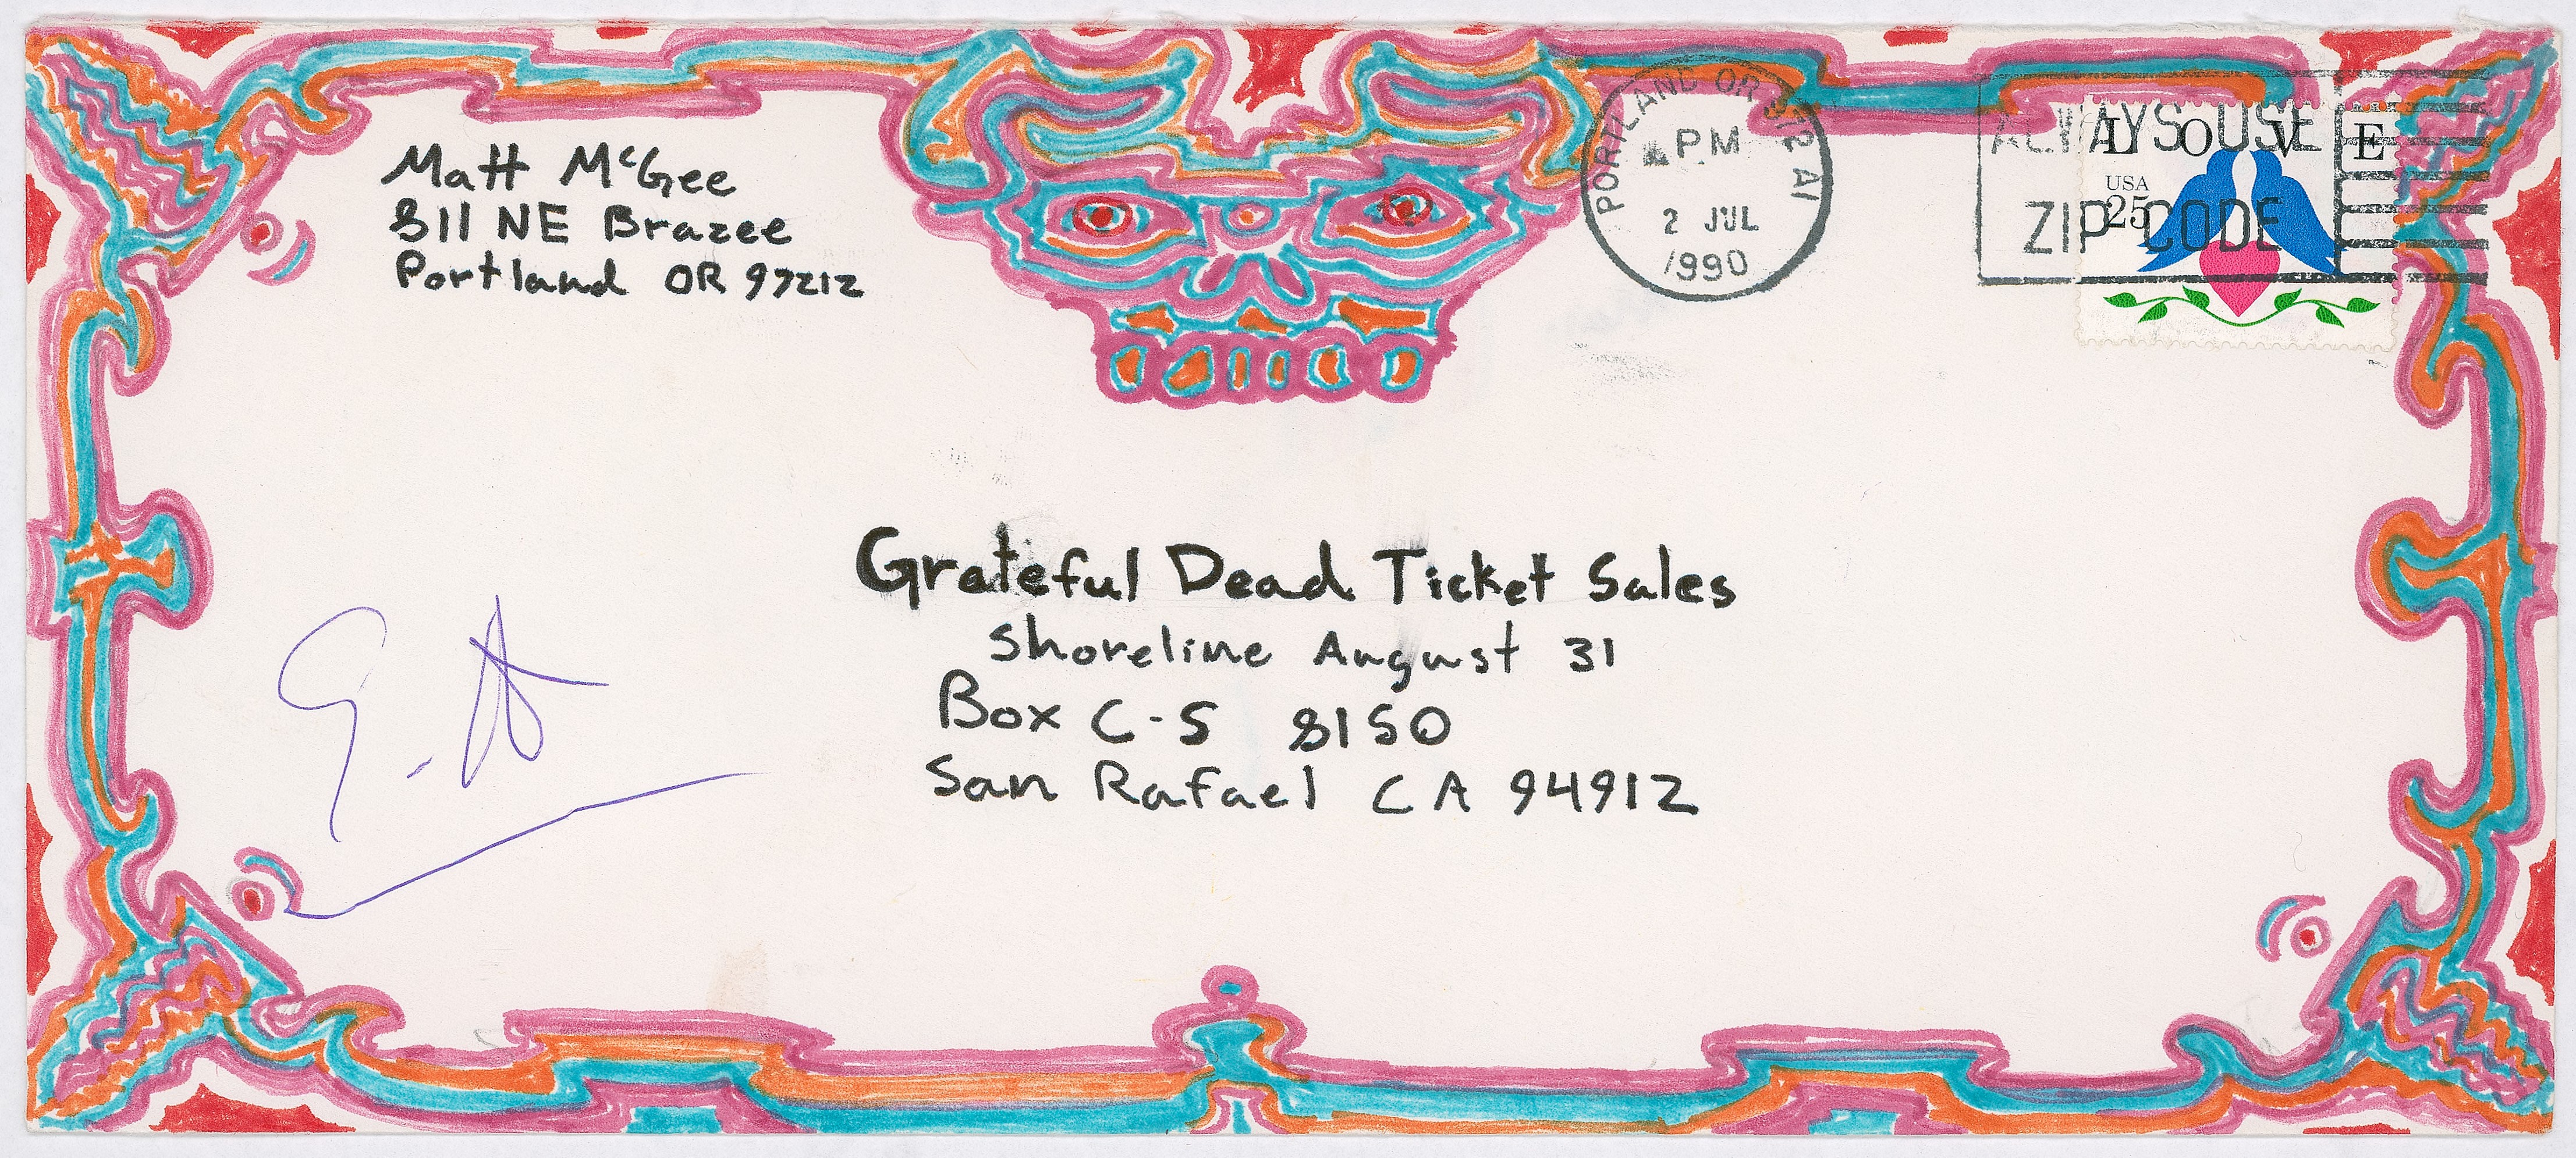 Matt McGee
811 NE Brazee
Portland OR 97212
PORTLAND OR 972
PM
2 JUL
1990
ALWAYS USE
ZIP CODE
LOVE
USA
25
Grateful Dead Ticket Sales
Shoreline August 31
Box C-S 8150
San Rafael CA 94912